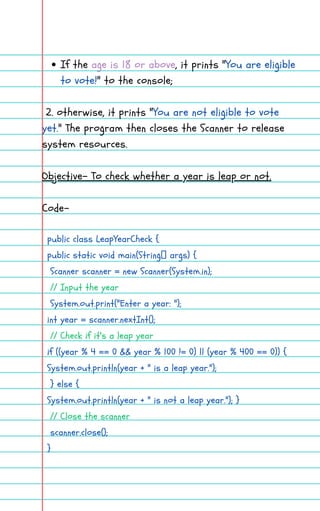 • If the age is 18 or above, it prints "You are eligible
to vote!" to the console;
2. otherwise, it prints "You are not eligible to vote
yet." The program then closes the Scanner to release
system resources.
Objective- To check whether a year is leap or not.
Code-
public class LeapYearCheck {
public static void main(String[] args) {
Scanner scanner = new Scanner(System.in);
// Input the year
System.out.print("Enter a year: ");
int year = scanner.nextInt();
// Check if it's a leap year
if ((year % 4 == 0 && year % 100 != 0) || (year % 400 == 0)) {
System.out.println(year + " is a leap year.");
} else {
System.out.println(year + " is not a leap year."); }
// Close the scanner
scanner.close();
}